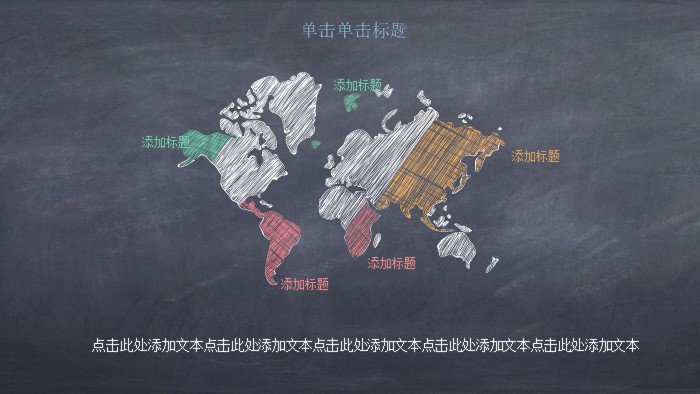 单击单击标题
添加标题
添加标题
添加标题
添加标题
添加标题
点击此处添加文本点击此处添加文本点击此处添加文本点击此处添加文本点击此处添加文本